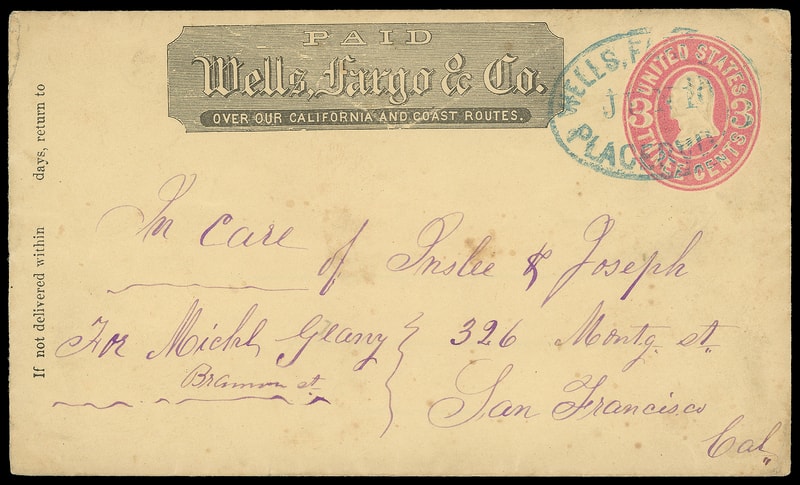 PAID
Wells, Fargo & Co.
OVER OUR CALIFORNIA AND COAST ROUTES.
WELLS,
UNITED STATES
3 3
THREE CENTS
If not delivered within days, return to
In care of Inslee & Joseph
For Michl Geany 326 Montg. st.
Brannan st.
San Francisco
Cal.